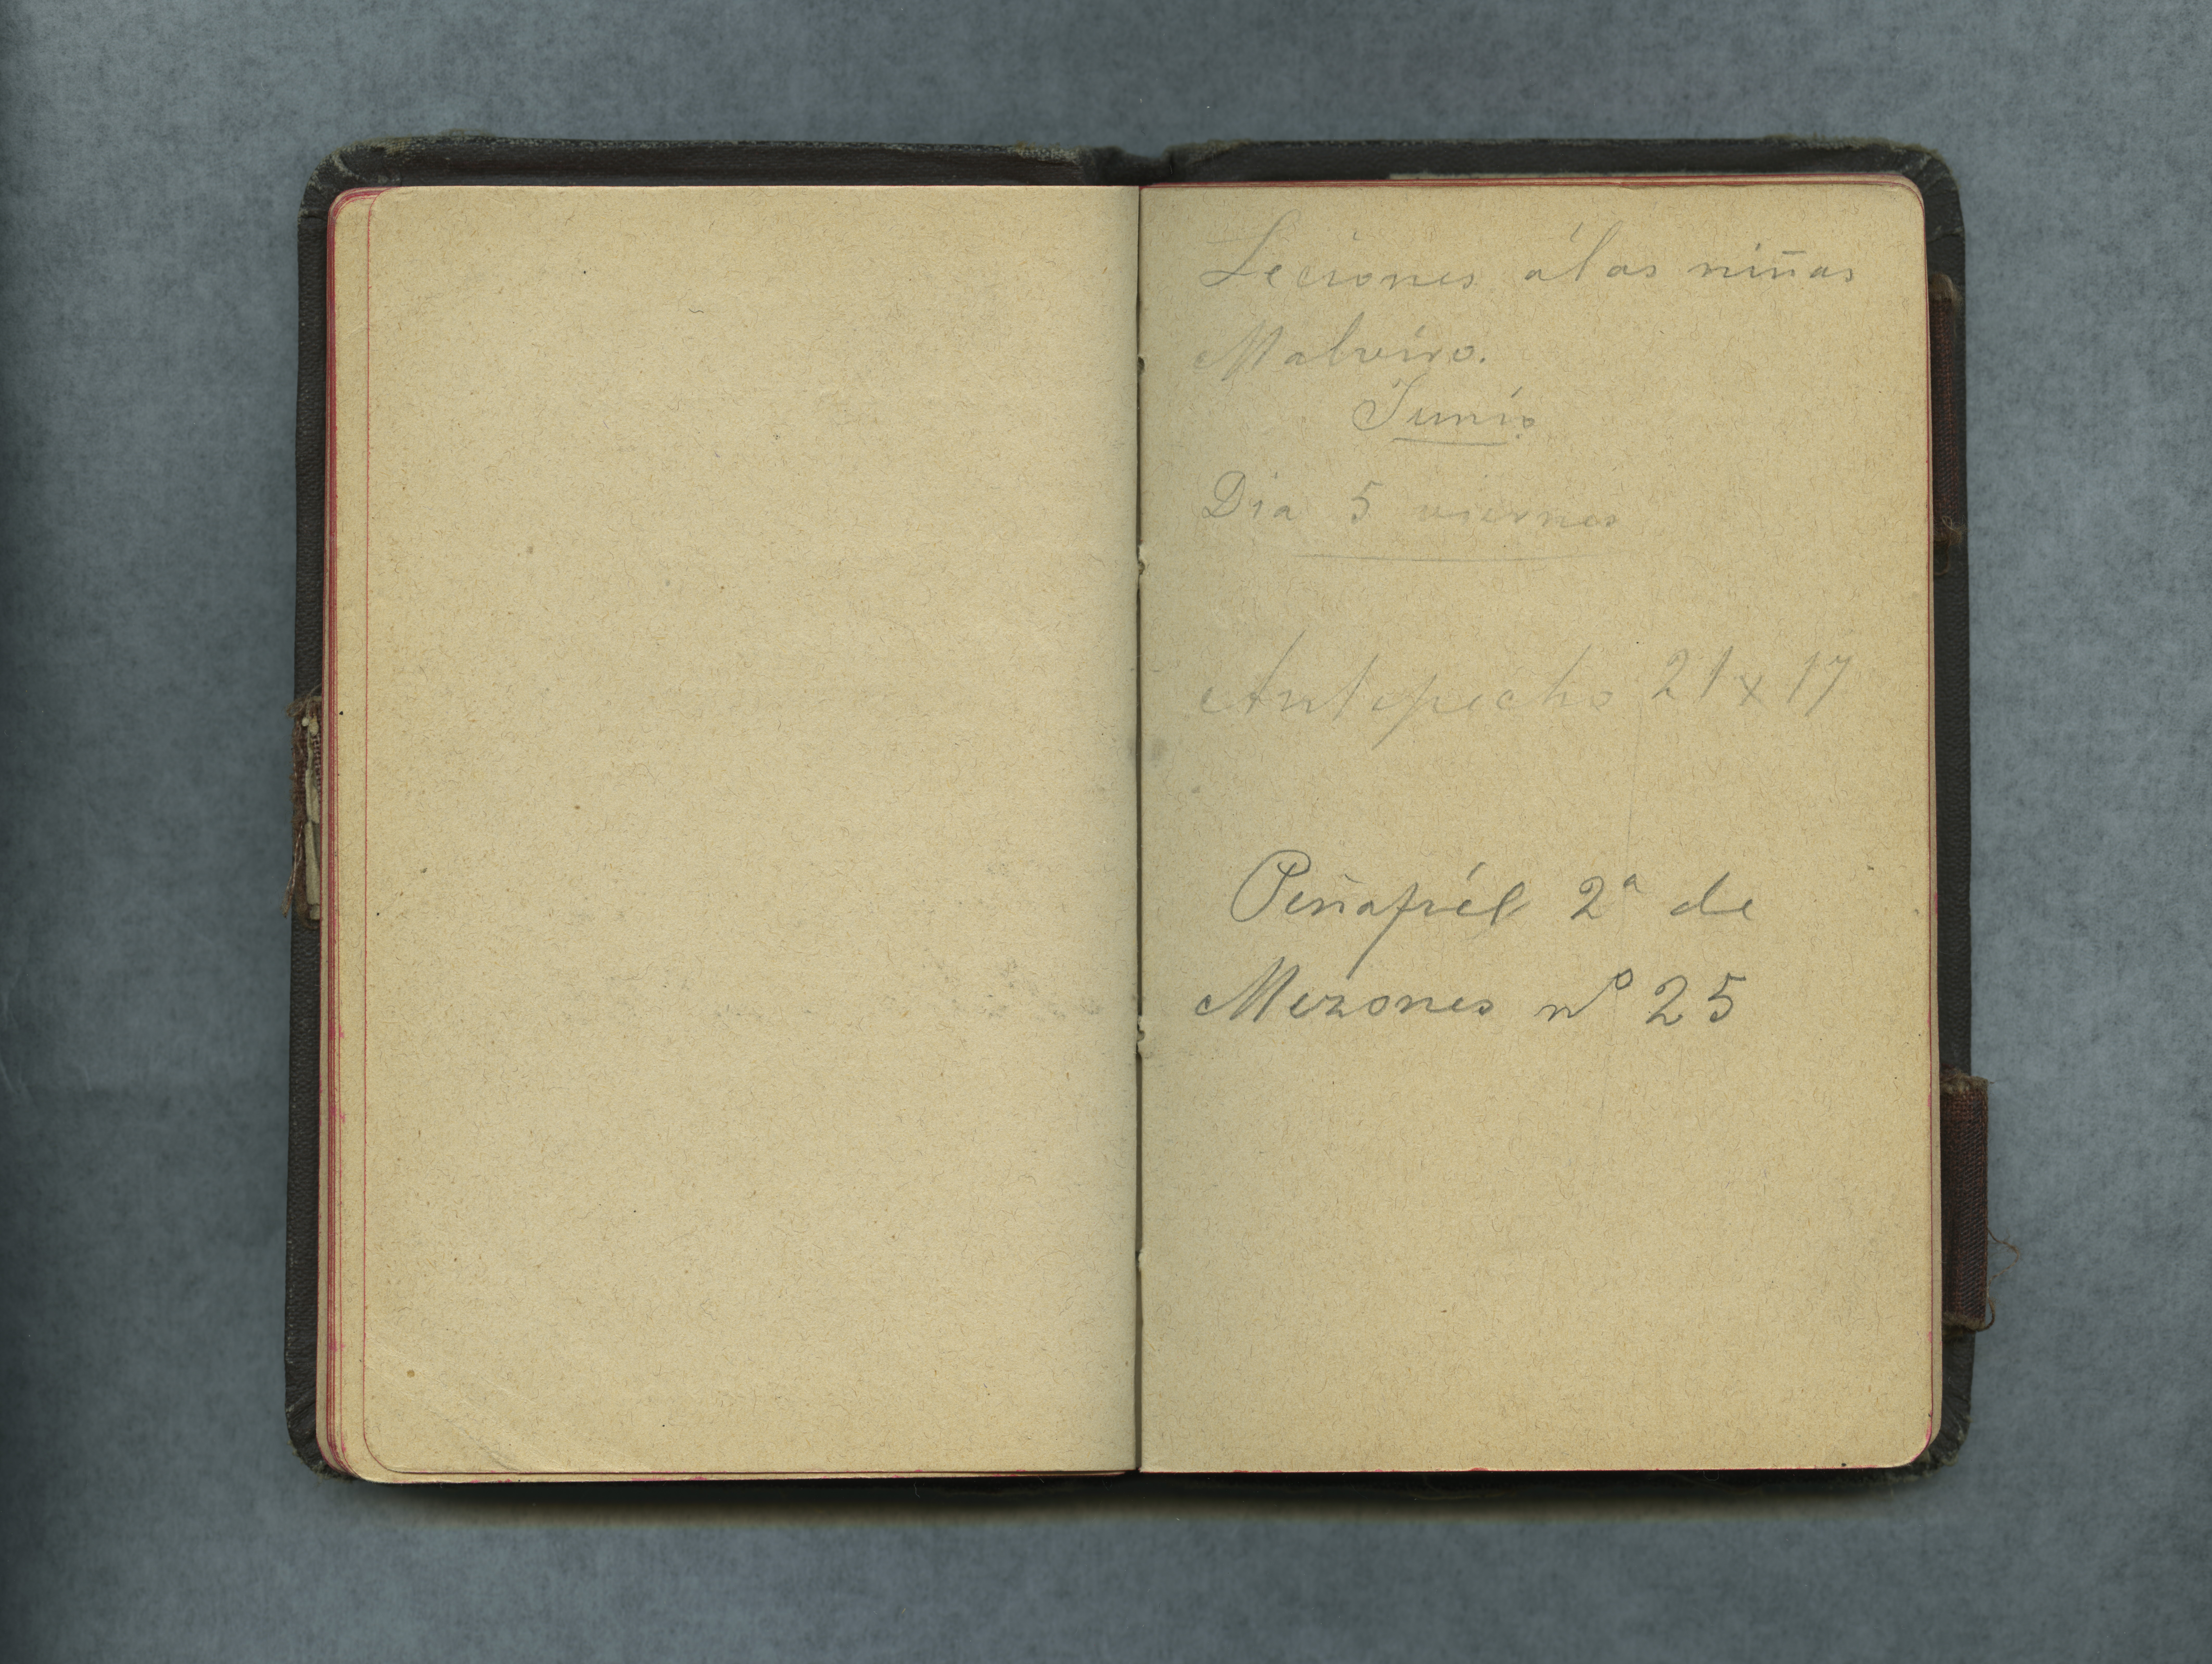 Leciones á las niñas
Malvido.
Junio
Dia 5 viernes
Antepecho 21 x 17
Peñafiél 2ª de
Mezones nº 25